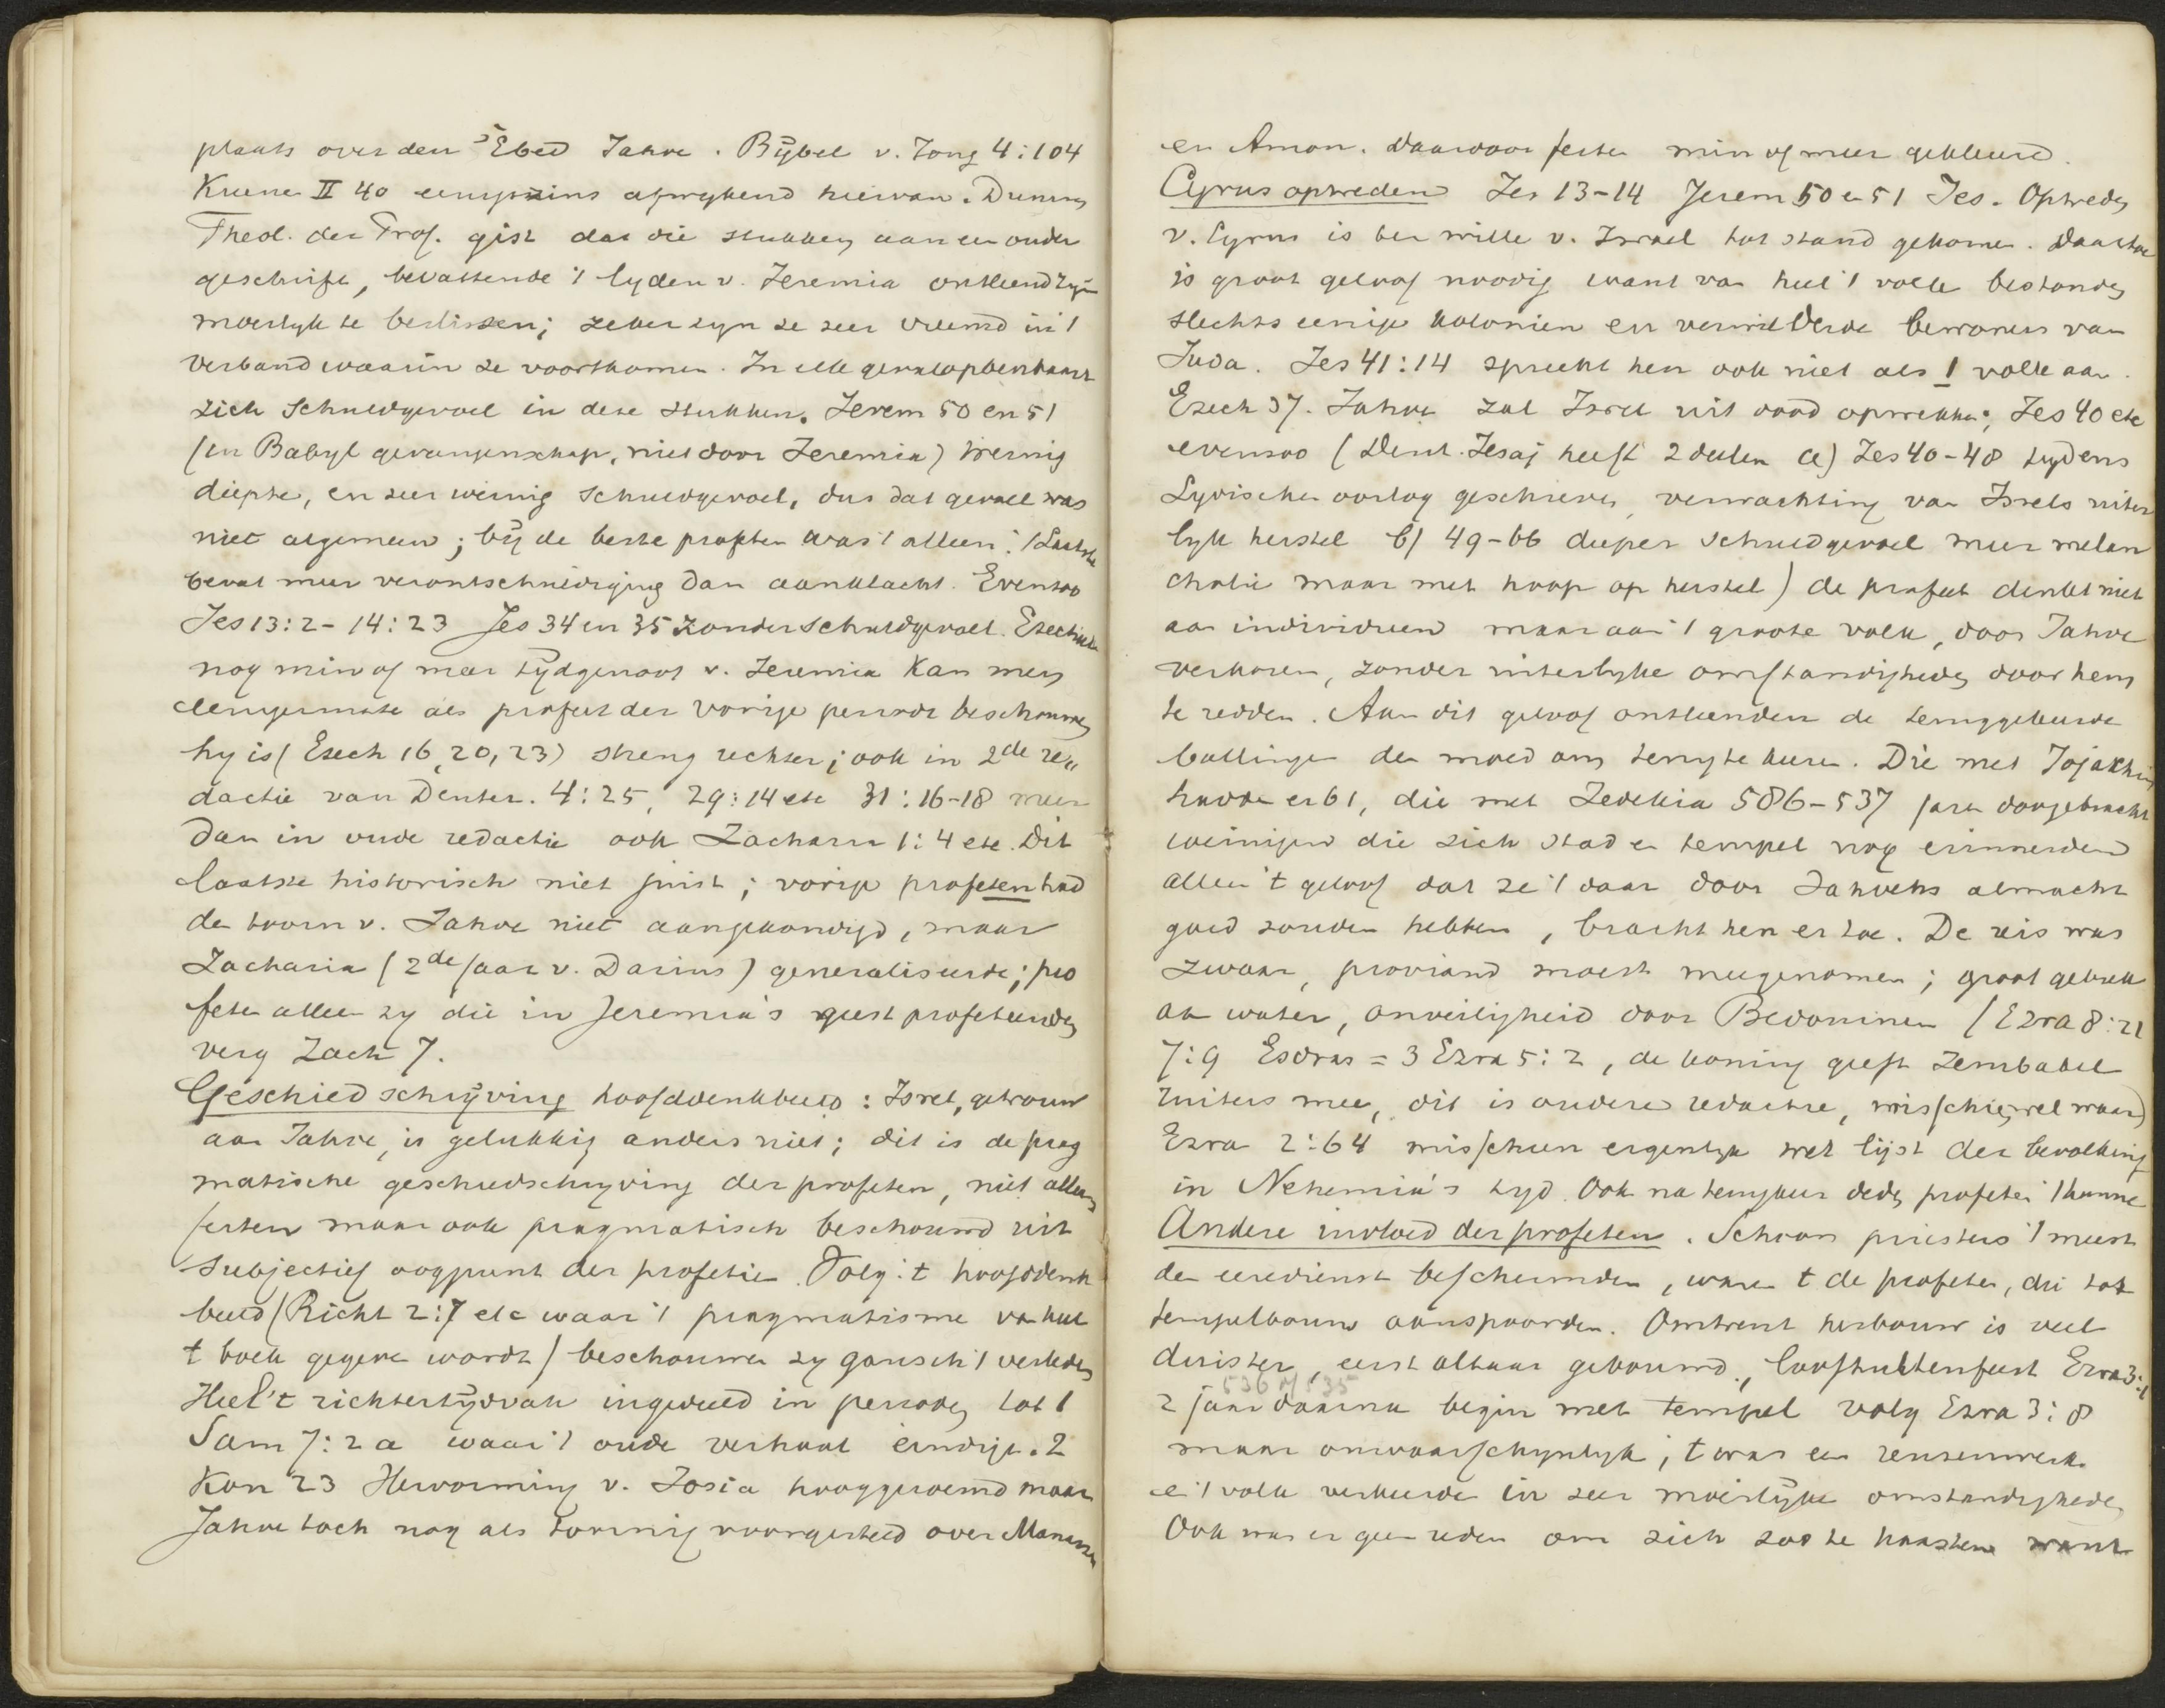 plaats over den Ebed Jahve. Bijbel v. Jong 4:104
Kuenen II 40 eenigszins afwykend hiervan. Duhm
Theol. der Prof. gist dat die stukken aan een ouder
geschrift, bevattende 't lyden v. Jeremia ontleend zyn
moeilyk te beslissen; zeker zyn ze zeer vreemd in 't
verband waarin ze voorkomen. In elk geval openbaart
zich schuldgevoel in deze stukken. Jerem 50 en 51
(in Babyl gevangenschap, niet door Jeremia) weinig
diepte, en zeer weinig schuldgevoel, dus dat gevoel was
niet algemeen; bij de beste profeten was 't alleen. (Laatste
bevat meer verontschuldiging dan aanklacht. Evenzoo
Jes 13:2-14:23 Jes 34 en 35 zonder schuldgevoel. Ezechiel
nog min of meer tijdgenoot v. Jeremia kan men
eenigermate als profeet der vorige periode beschouwen
hy is (Ezech 16, 20, 23) streng rechter; ook in 2de re„
dactie van Deuter. 4:25, 29:14 etc 31:16-18 meer
dan in oude redactie ook Zacharia 1:4 etc. Dit
laatste historisch niet juist; vorige profeten had
den toorn v. Jahve niet aangekondigd, maar
Zacharia (2de jaar v. Darius) generaliseerde; pro
feten alleen zy die in Jeremia's geest profeteerden
verg Zach 7.
Geschiedschrijving hoofddenkbeeld: Isrel, getrouw
aan Jahve, is gelukkig anders niet; dit is de prag
matische geschiedschryving der profeten, niet alleen
feiten maar ook pragmatisch beschouwd uit
subjectief oogpunt der profetie. Volg. 't hoofddenk
beeld (Richt 2:7 etc waar 't pragmatisme van heel
t boek gegeven wordt) beschouwen zy gansch 't verleden
Heel 't richtertijdvak ingedeeld in perioden tot 1
Sam 7:2a waar 't oude verhaal eindigt. 2
Kon 23 Hervorming v. Josia hooggeroemd maar
Jahve toch nog als toornig voorgesteld over Manasse
en Amon. Daardoor feiten min of meer gekleurd.
Cyrus optreden Jes 13-14 Jerem 50 en 51 Jes. Optreden
v. Cyrus is ter wille v. Israel tot stand gekomen. Daartoe
is groot geloof noodig want van heel 't volk bestonden
slechts eenige kolonien en verwilderde bewoners van
Juda. Jes 41:14 spreekt hen ook niet als 1 volk aan.
Ezech 37. Jahve zal Isrel uit dood opwekken; Jes 40 etc
evenzoo (Deut. Jesaj heeft 2 deelen a) Jes 40-48 tydens
Lydischen oorlog geschreven, verwachting van Isrels uiter
lyk herstel b) 49-66 dieper schuldgevoel meer melan
cholie maar met hoop op herstel) de profeet denkt niet
aan individuen maar aan 't groote volk, door Jahve
verkoren, zonder uiterlyke omstandigheden door hem
te redden. Aan dit geloof ontleenden de teruggekeerde
ballingen den moed om terug te keeren. Die met Jojakhin
hadden er 61, die met Zedekia 586-537 jaren doorgebracht
weinigen die zich stad en tempel nog erinnerden
alleen 't geloof dat ze 't daar door Jahvehs almacht
goed zouden hebben, bracht hen er toe. De reis was
zwaar, proviand moest meegenomen; groot gebrek
aan water, onveiligheid door Bedouinen (Ezra 8:21
7:9 Esdras = 3 Ezra 5:2, de koning geeft Zerubabel
ruiters mee, dit is andere redactie, misschien wel waar)
Ezra 2:64 misschien eigenlyk met lijst der bevolking
in Nehemia's tyd. Ook na terugkeer deden profeten 't hunne
Andere invloed der profeten. Schoon priesters 't meest
den eeredienst beschermden, waren t de profeten, die tot
tempelbouw aanspoorden. Omtrent herbouw is veel
duister, eerst altaar gebouwd, loofhuttenfeest Ezra 3:1
536 of 535
2 jaar daarna begin met tempel volg Ezra 3:8
maar onwaarschynlyk, t was een reuzenwerk
en 't volk verkeerde in zeer moeilyke omstandigheden
Ook was er geen reden om zich zoo te haasten want